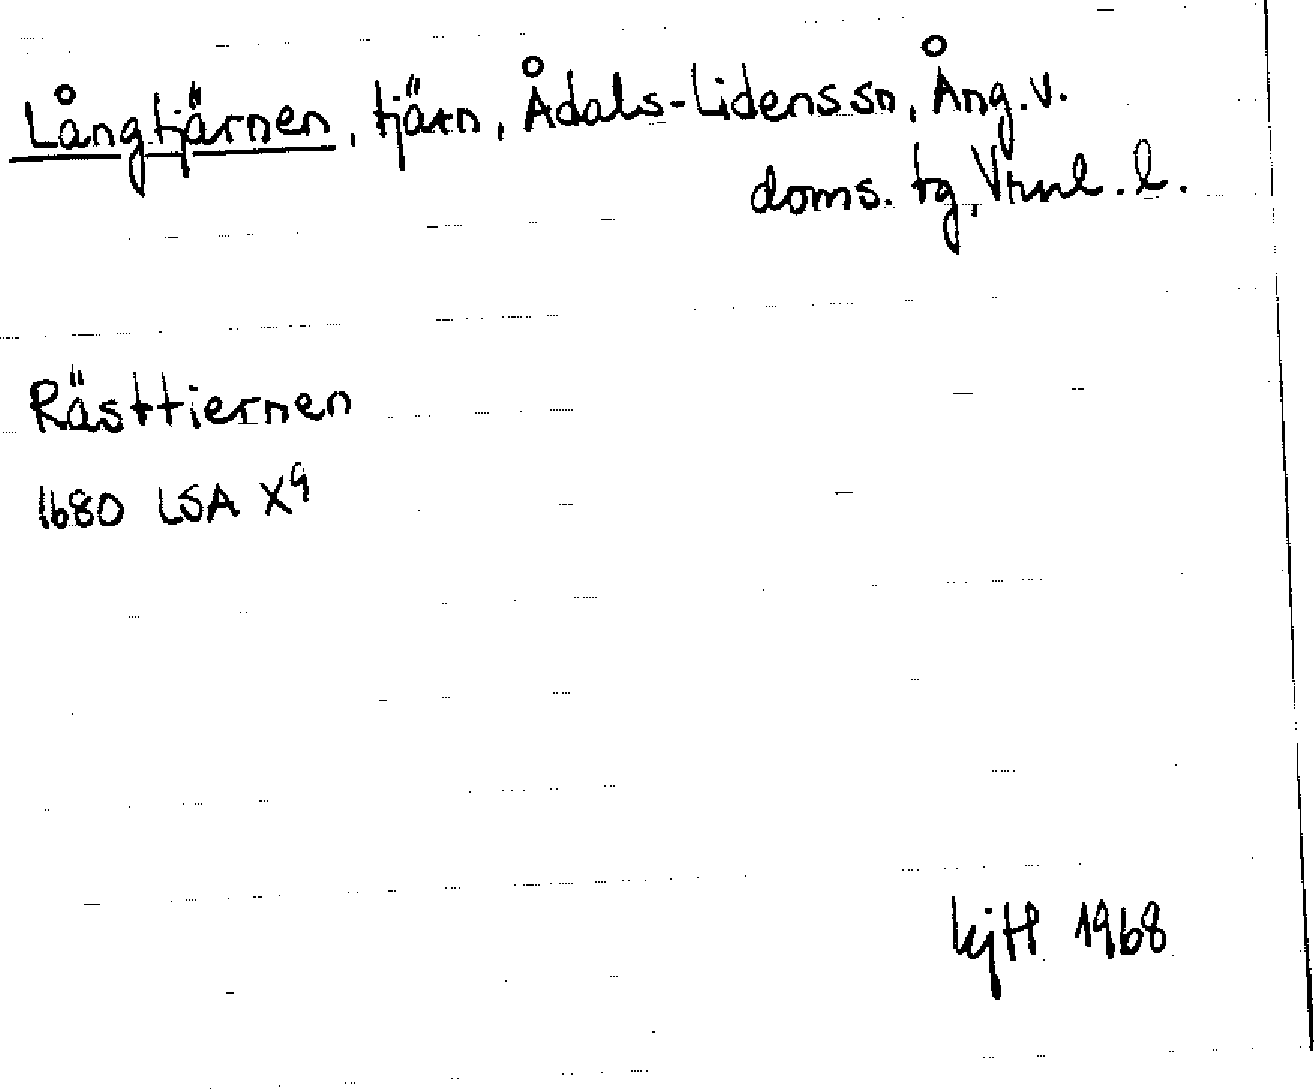 Långtjärnen, tjärn, Ådals-Lidens sn, Ång. v.
doms. tg, Vrnl. l.
Rästtiernen
1680 LSA X9
1968